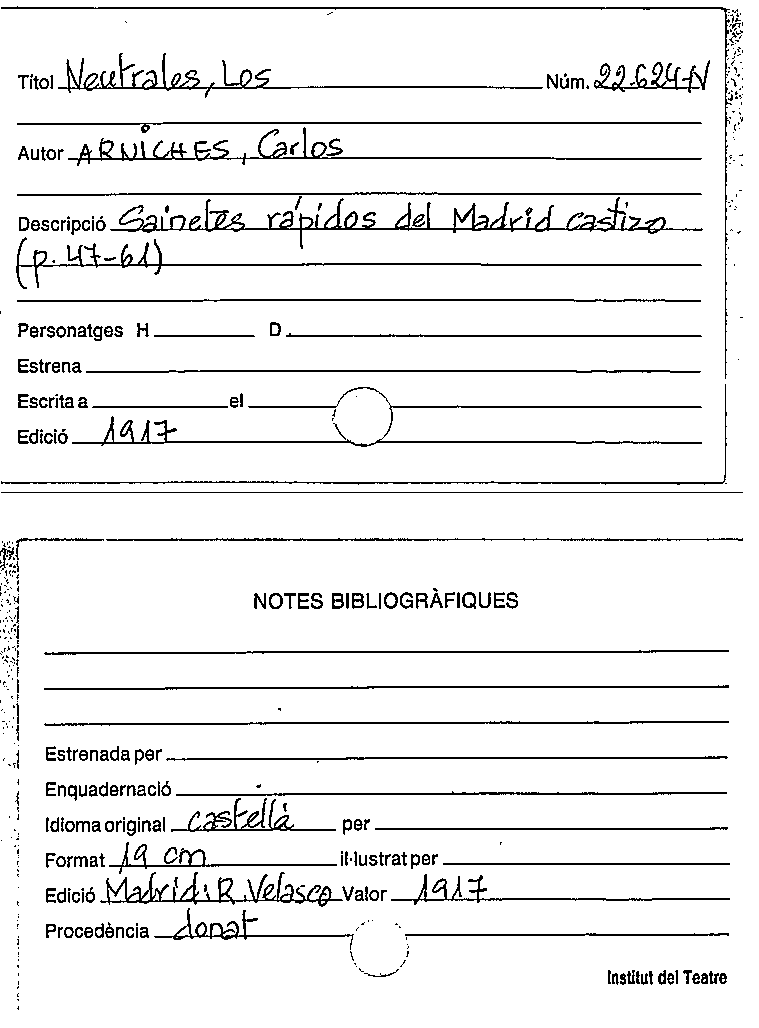 Títol Neutrales, Los Núm. 22.624-N
Autor ARNICHES, Carlos
Descripció Sainetes rápidos del Madrid castizo
(p. 47-61)
Personatges H D
Estrena
Escrita a el
Edició 1917
NOTES BIBLIOGRÀFIQUES
Estrenada per
Enquadernació
Idioma original castellà per
Format 19 cm il·lustrat per
Edició Madrid: R. Velasco Valor 1917
Procedència donat
Institut del Teatre